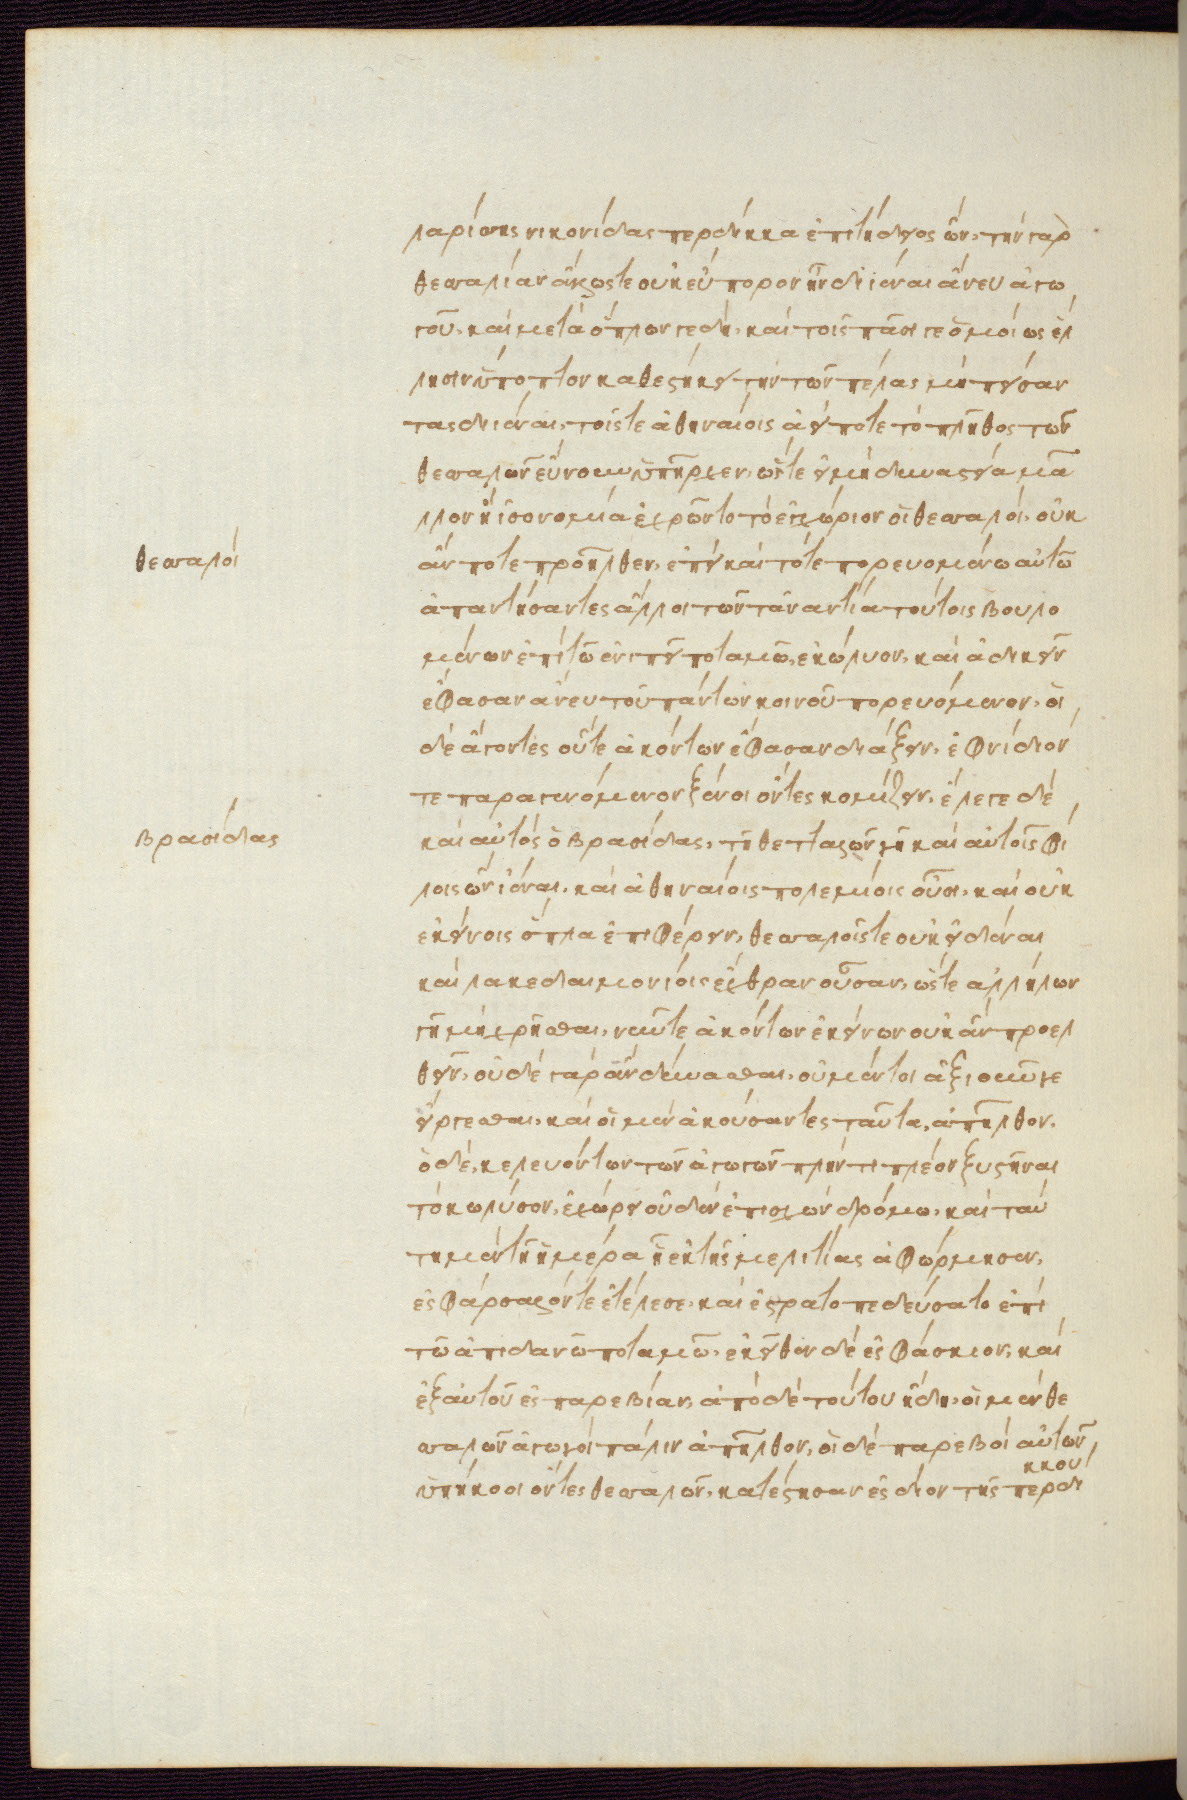 λαρίσης νικονίδας περδίκκα ἐπιτήδειος ὤν. τὴν γὰρ
θεσσαλίαν ἄλλως τε οὐκ εὔπορον ἦν διιέναι ἄνευ ἀγω
γοῦ. καὶ μετὰ ὅπλων γε δή. καὶ τοῖς πᾶσί γε ὁμοίως ἕλ
λησιν ὕποπτον καθεστήκει τὴν τῶν πέλας μὴ πείσαν
τας διιέναι. τοῖς τε ἀθηναίοις ἀεί ποτε τὸ πλῆθος τῶν
θεσσαλῶν εὔνοουν ὑπῆρχεν. ὥστε εἰ μὴ δυναστεία μᾶ
λλον ἢ ἰσονομία ἐχρῶντο τὸ ἐγχώριον οἱ θεσσαλοί. οὐκ
θεσσαλοί
ἄν ποτε προῆλθεν. ἐπεὶ καὶ τότε πορευομένω αὐτῶ
ἀπαντήσαντες ἄλλοι τῶν τἀναντία τούτοις βουλο
μένων ἐπὶ τῶ ἐνιπεῖ ποταμῶ, ἐκώλυον. καὶ ἀδικεῖν
ἔφασαν ἄνευ τοῦ πάντων κοινοῦ πορευόμενον. οἱ
δὲ ἄγοντες οὔτε ἀκόντων ἔφασαν διάξειν. ἐφνίδιόν
τε παραγενόμενον ξένοι ὄντες κομίζειν. ἔλεγε δὲ
βρασίδας
καὶ αὐτὸς ὁ βρασίδας, τῆ θετταλῶν γῆ καὶ αὐτοῖς φί
λοις ὢν ἰέναι. καὶ ἀθηναίοις πολεμίοις οὖσι. καὶ οὐκ
ἐκείνοις ὅπλα ἐπιφέρειν. θεσσαλοῖς τε οὐκ εἰδέναι
καὶ λακεδαιμονίοις ἔχθραν οὖσαν. ὥστε ἀλλήλων
γῆ μὴ χρῆσθαι. νῦν τε ἀκόντων ἐκείνων οὐκ ἂν προελ
θεῖν. οὐδὲ γὰρ ἂν δύνασθαι. οὐ μέντοι ἀξιοῦν γε
εἴργεσθαι. καὶ οἱ μὲν ἀκούσαντες ταῦτα, ἀπῆλθον.
ὁ δὲ, κελευόντων τῶν ἀγωγῶν πλήν τι πλέον ξυστῆναι
τὸ κωλύσον, ἐχώρει οὐδὲν ἐπισχὼν δρόμω. καὶ ταύ
τη μὲν τῆ ἡμέρα ἧ ἐκ τῆς μελιτίας ἀφώρμησεν,
ἐς φάρσαλόν τε ἐτέλεσε. καὶ ἐστρατοπεδεύσατο ἐπὶ
τῶ ἀπιδανῶ ποταμῶ. ἐκεῖθεν δὲ ἐς φάσκιον. καὶ
ἐξ αὐτοῦ ἐς παρεβίαν. ἀπὸ δὲ τούτου ἤδη. οἱ μὲν θε
σσαλῶν ἀγωγοὶ πάλιν ἀπῆλθον. οἱ δὲ παρεβοὶ αὐτῶν
ὑπήκοοι ὄντες θεσσαλῶν. κατέστησαν ἐς δῖον τῆς περδι
κκου